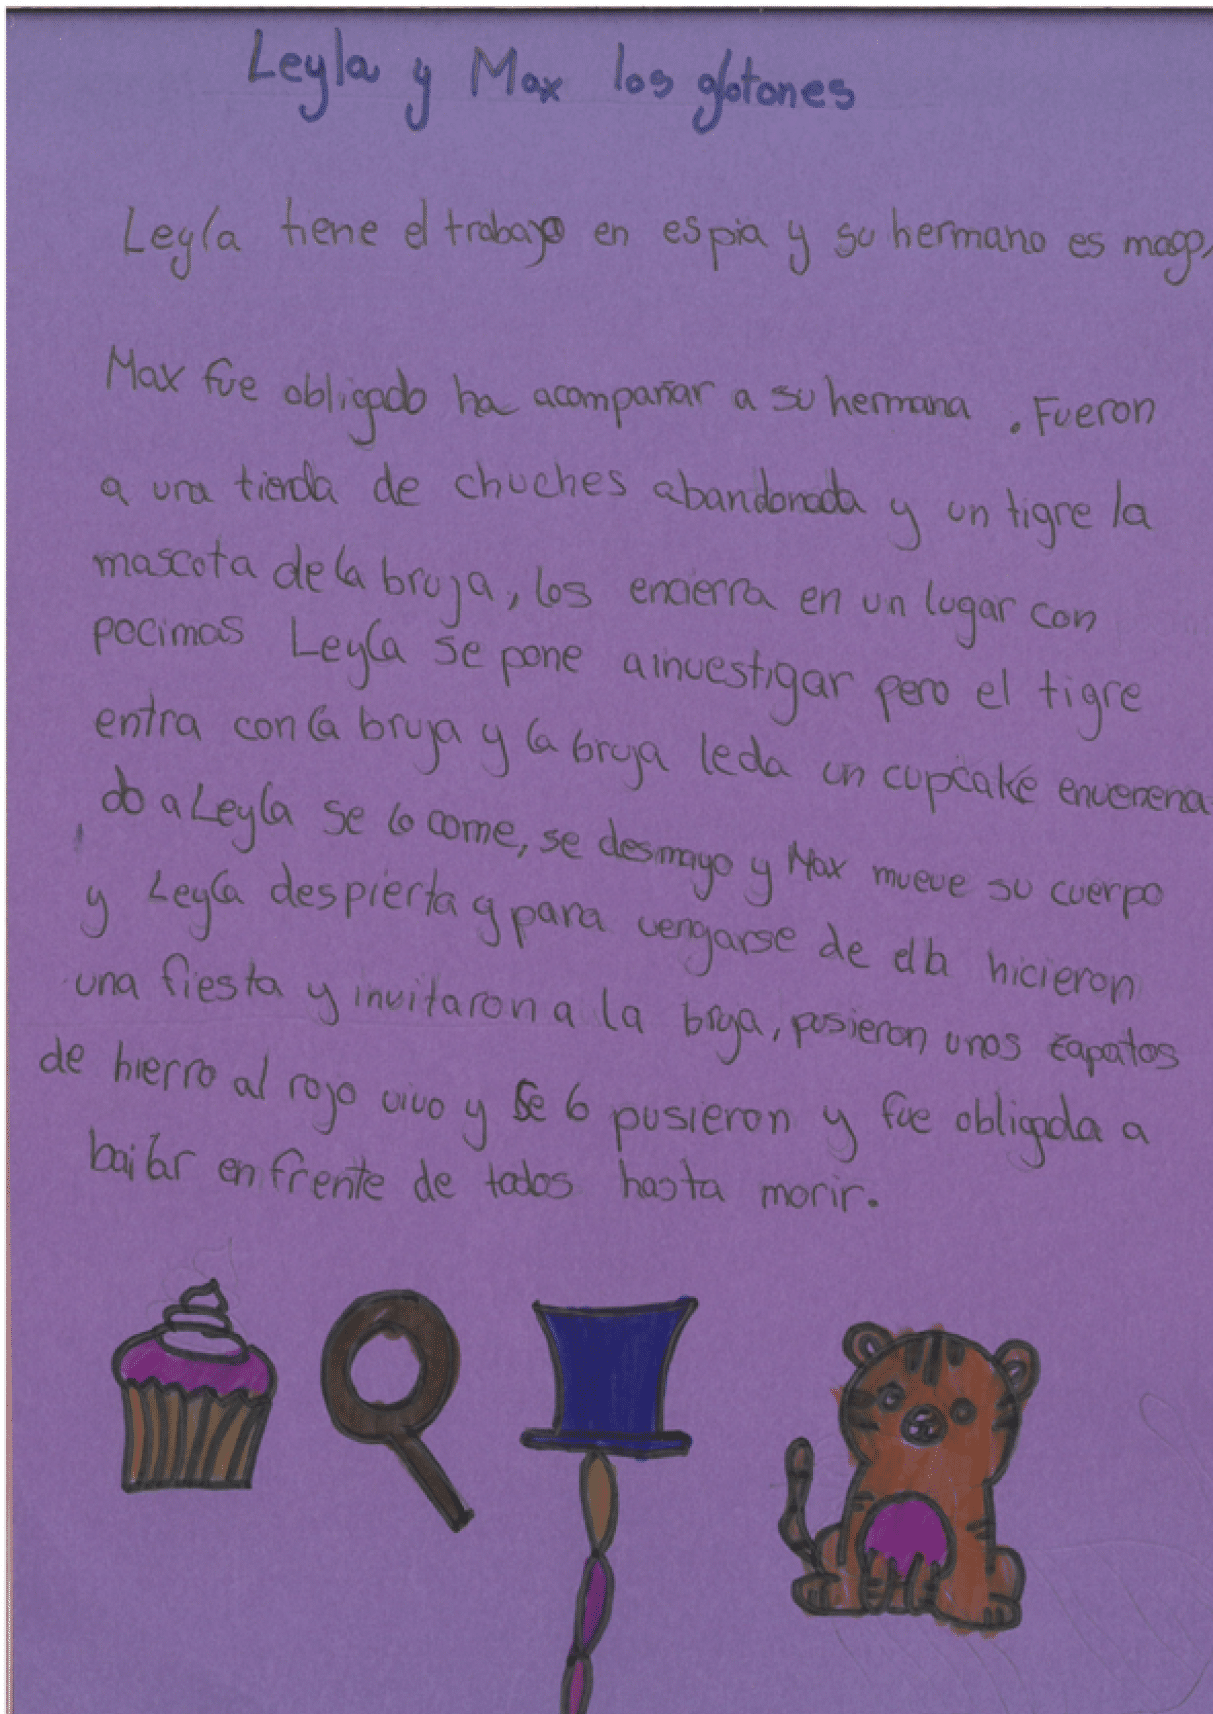 Leyla y Max los glotones
Leyla tiene el trabajo en espia y su hermano es mago,
Max fue obligado ha acompañar a su hermana . Fueron
a una tienda de chuches abandonada y un tigre la
mascota de la bruja, los encierra en un lugar con
pocimas Leyla se pone a investigar pero el tigre
entra con la bruja y la bruja le da un cupcake envenena
do a Leyla se lo come, se desmayo y Max mueve su cuerpo
y Leyla despierta y para vengarse de ella hicieron
una fiesta y invitaron a la bruja, pusieron unos zapatos
de hierro al rojo vivo y se lo pusieron y fue obligada a
bailar en frente de todos hasta morir.